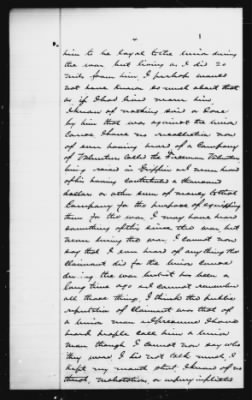 him to be loyal to the Union during
the war but living as I did 20
mile from him, I perhaps would
not have known so much about that
as if I had lived nearer him.
I know of nothing said or done
by him that was against the Union
cause. I have no recollection now
of ever having heard of a Company
of Volunteers called the Freeman Volunteers
being raised in Griffin and never heard
of his having contributed a thousand
dollars or other sum of money to that
Company for the purpose of equipping
them for the war. I may have heard
something of this since the war but
never during the war. I cannot now
say that I ever heard of anything the
claimant did for the Union cause
during the war but it has been a
long time ago and cannot remember
all those things. I think the public
reputation of claimant was that of
a Union man. I presume I have
heard people call him a Union
man though I cannot now say who
they were. I did not talk much. I
kept my mouth shut. I know of no
threat, molestation, or injury inflicted